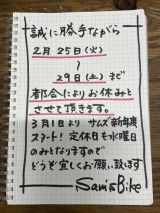 誠に勝手ながら
2月25日(火)
〜
29日(土)まで
都合によりお休みと
させて頂きます。
3月1日より サムズ新年度
スタート! 定休日も水曜日
のみとなりますので
どうぞ宜しくお願い致します
Sam's Bike